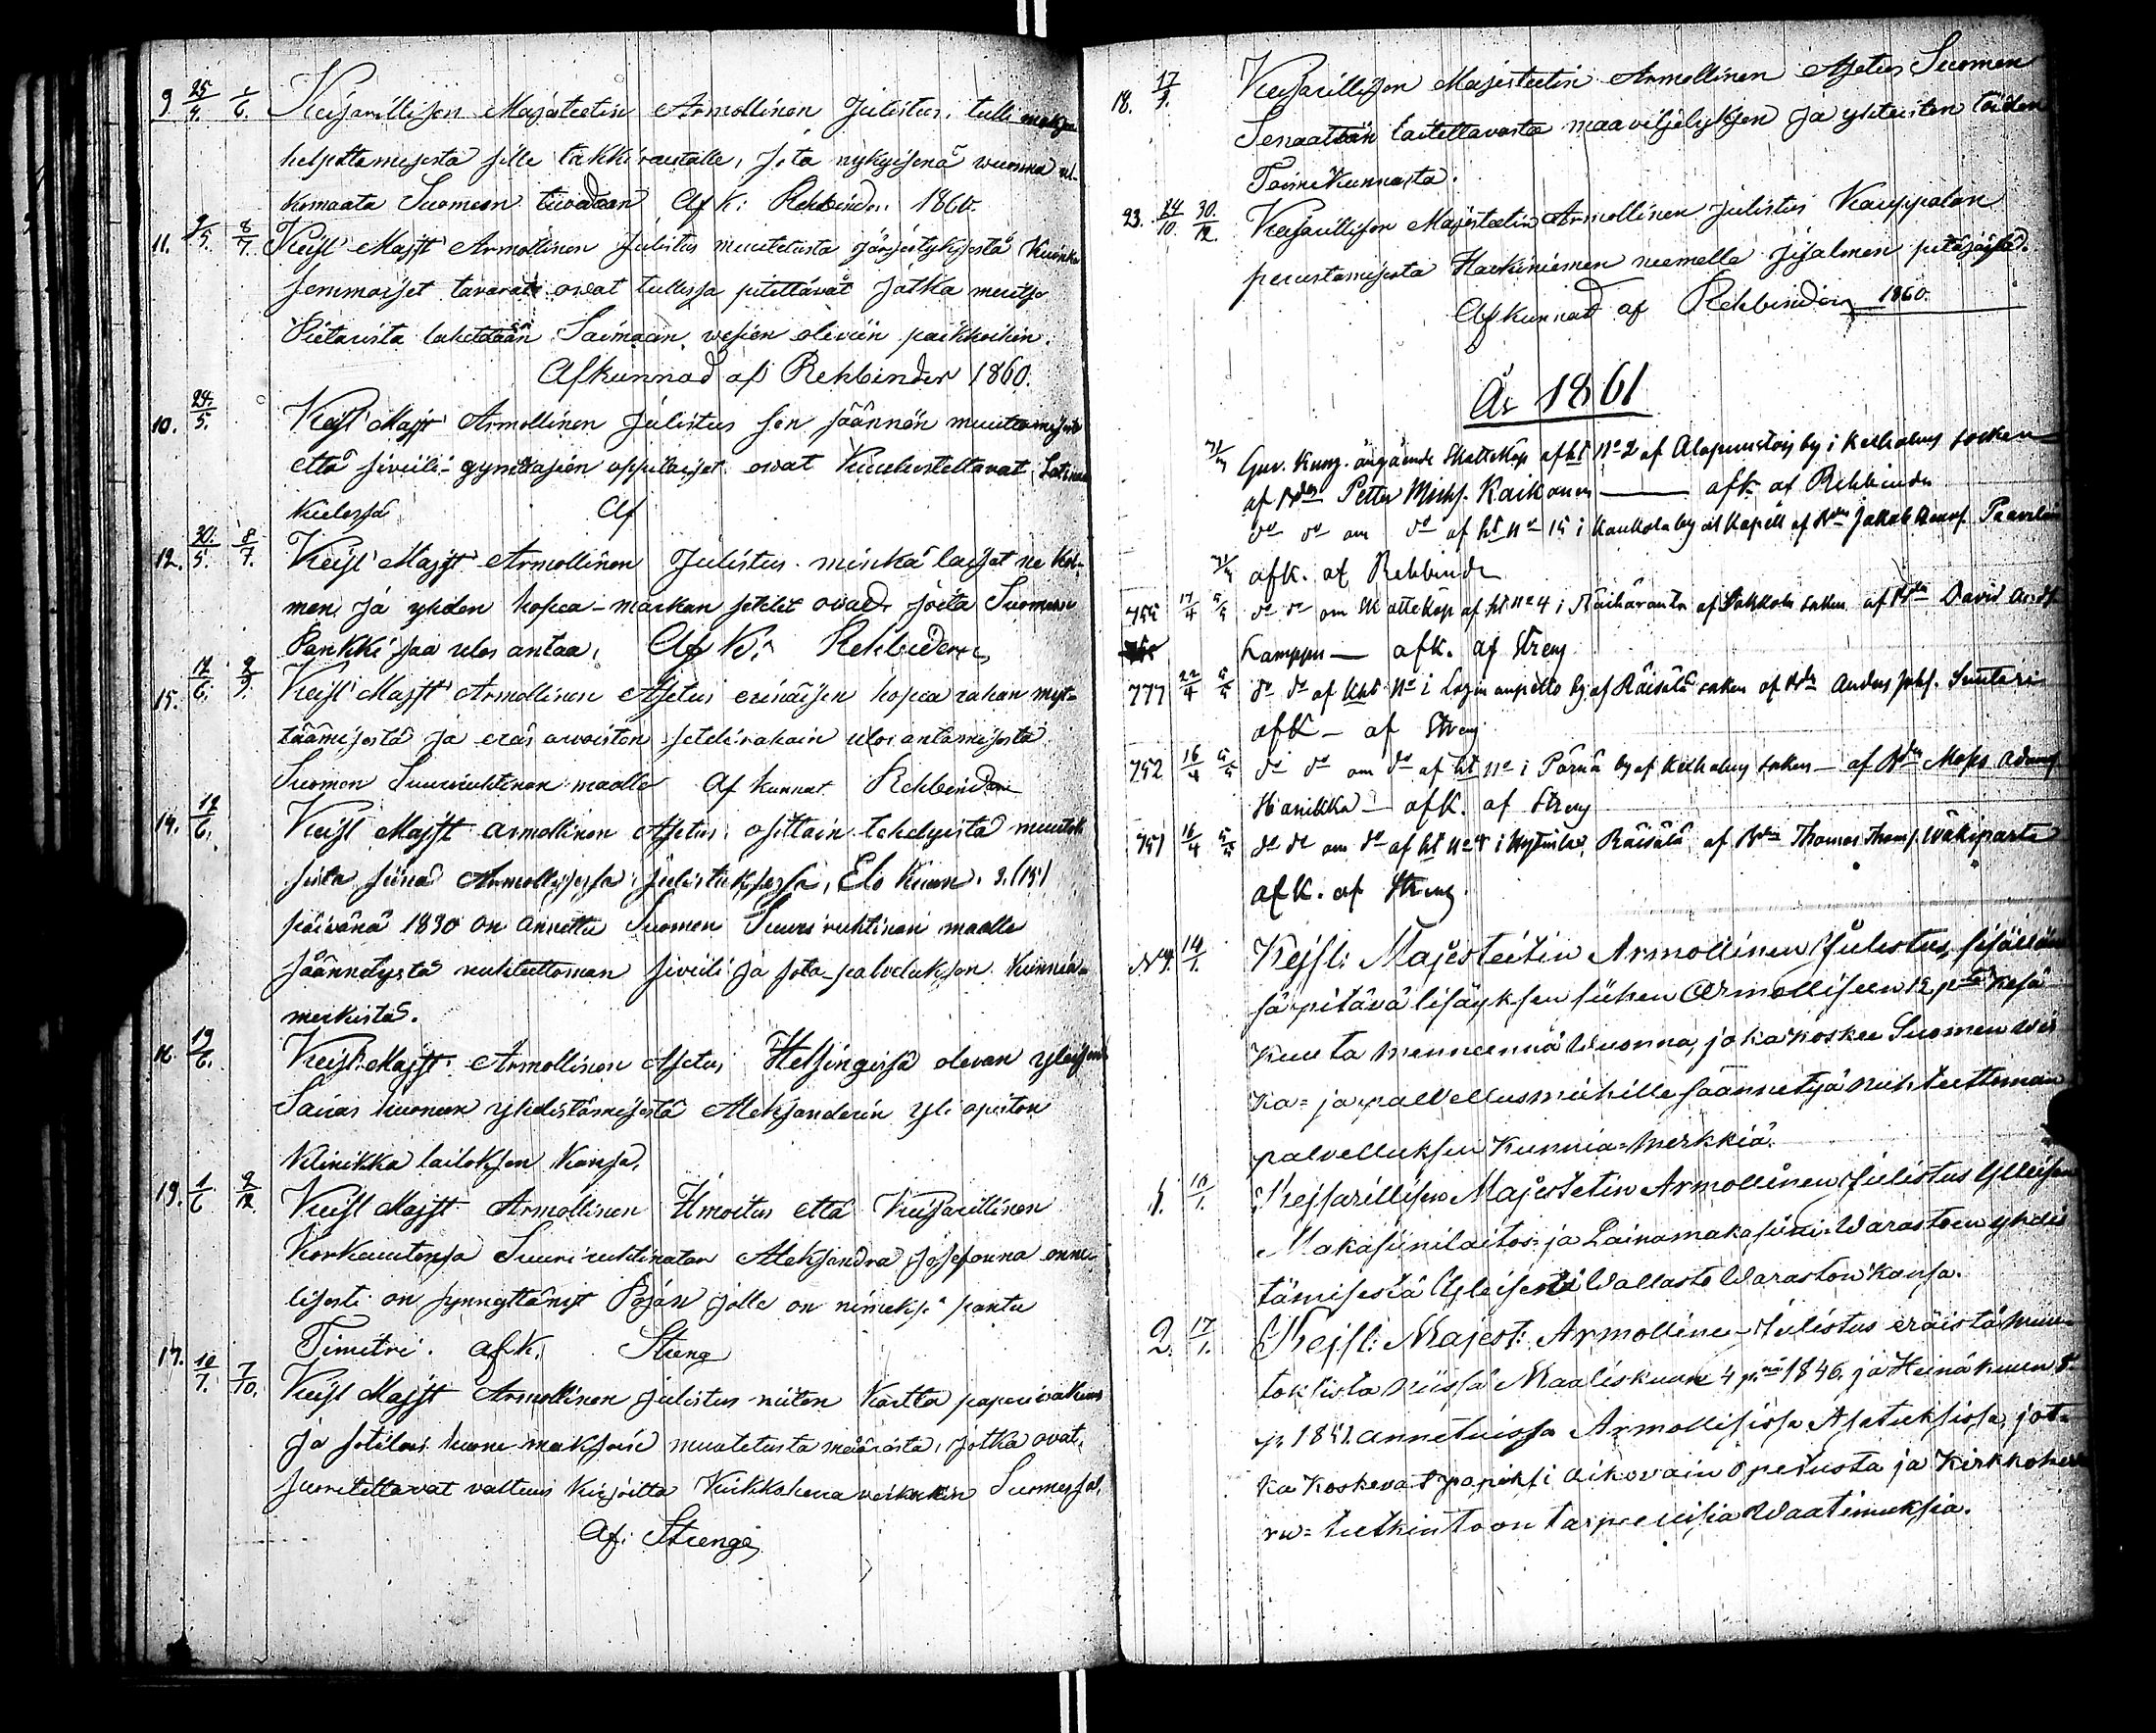 9. 25/4. 1/6. Keisarillisen Majesteetin Armollinen Julistus, tulli maksun
helpottamisesta sille takkiraudalle, jota nykyisenä wuonna ul-
komaata Suomeen tuodaan Afk: Rehbinder 1860.
11. 9/5. 8/7. Keisl Majst Armollinen Julistus muutetusta järjestyksestä kuinka
semmoiset tavarat owat tullissa pitettävät jotka meritse
Pietarista lähetetään Saimaan vesien oleviin paikkoihin.
Afkunnad af Rehbinder 1860.
10. 24/5. Keisl Majst Armollinen Julistus sen säännön muuttamisesta
että siviili-gymnasien oppilaiset owat kuulusteltavat Latinan
kielessä Af
12. 30/5. 8/7. Keisl Majst Armollinen Julistus minkä laiset ne kol-
men ja yhden hopea-markan setelit owat, joita Suomen
Pankki saa ulos antaa. Af K: Rehbinder
15. 12/6. 2/9. Keisl Majst Armollinen Asetus erinäisen hopea rahan myt-
täämisestä ja eräs arvoisten setelirahain ulos antamisesta
Suomen Suuriruhtinan maalle Af kunnat Rehbinder
14. 12/6. Keisl Majst armollinen Asetus osittain tehdyistä muutok-
sista siinä Armollisessa Julistuksessa, Elo kuun 3.(15)
päivänä 1830 on annettu Suomen Suuri ruhtinan maalle
säännetystä nuhteettoman siviili ja sota-palveluksen kunnia-
merkistä.
16. 19/6. Keisl Majst Armollinen Asetus Helsingissä olevan yleisen
Sairas huoneen yhdistämisestä Aleksanderin yli opiston
Klinikka laitoksen kansa.
19. 1/6. 2/12. Keisl Majst Armollinen Ilmoitus että Keisarillinen
Korkeutensa Suuri ruhtinatar Aleksandra Josefovna onne-
lisesti on synnyttänyt Pojan jolle on nimeksi pantu
Timitri. afk. Streng
17. 10/7. 7/10. Keisl Majst Armollinen julistus niiten Kartta paperi
ja sotilas huone maksoin muutetusta määrästä, jotka ovat
suoritettavat valtuus kirjoitta Kirkkoherra Suomessa.
Af: Streng
18. 17/9. Keisarillisen Majesteetin Armollinen Asetus Suomen
Senaatiin laitettavasta maaviljelyksen ja yhteisten töiden
Toimikunnasta.
23. 24/10. 30/12. Keisarillisen Majesteetin Armollinen Julistus Kauppalan
perustamisesta Haukiniemen niemelle Jisalmen pitäjässä.
Afkunnad af Rehbinder 1860.
År 1861
Guv. Kung. angående Skatteköp af ht No 2 af Alapuustois by i Kexholms socken
af Bden Petter Michs. Kaikonen — afk. af Rehbinder
do do om do af ht No 15 i Kaukola by ol Kapell af Bden Jakob Paavilain
afk. af Rehbinder
755 17/4 5/5 do do om Skatteköp af ht No 4 i Räihäranta af Sakkola socken af Bden David
Lamppu — afk. af Streng
777 22/4 5/5 do do af ht No i by af Räisälä socken af Bden Anders Johs. Suutari
afk — af Streng
752 16/4 5/5 do do om do af ht No i Pärnä by af Kexholms socken — af Bden Mats Adams
Hanikka — afk. af Streng
751 16/4 5/5 do do om do af ht No 8 i Räisälä af Bden Thomas Thoms. Wäkiparta
afk. af Streng.
No 4. 14/1. Kejsl: Majesteitin Armollinen Julistus, sisällän
säpitävä lisäyksen siihen Armolliseen 12 ptä kesä
kuuta mennennä Wuonna, joka koskee Suomen wir
ka= ja palvellusmiehille säännetyä nuhteettoman
palvelluksen Kunnia=Merkkiä.
1. 10/1. Kejsarillisen Majestetin Armollinen Julistus Ylleisen
Makasiinilaitos- ja Lainamakasiini-Waraston yhdis
tämisestä Yleisestä Wallasto Waraston kansa.
2. 17/1. Kejsl: Majest: Armolline Julistus eräistä muu-
toksista niissä Maaliskuun 4 pnä 1846. ja Heinäkuun 8
p. 1851. annetuissa Armollisissa Asetuksissa, jot-
ka koskevat papiksi aikovain opetusta ja Kirkkoher
ra= tutkintoon tarpeellisia Waatimuksia.